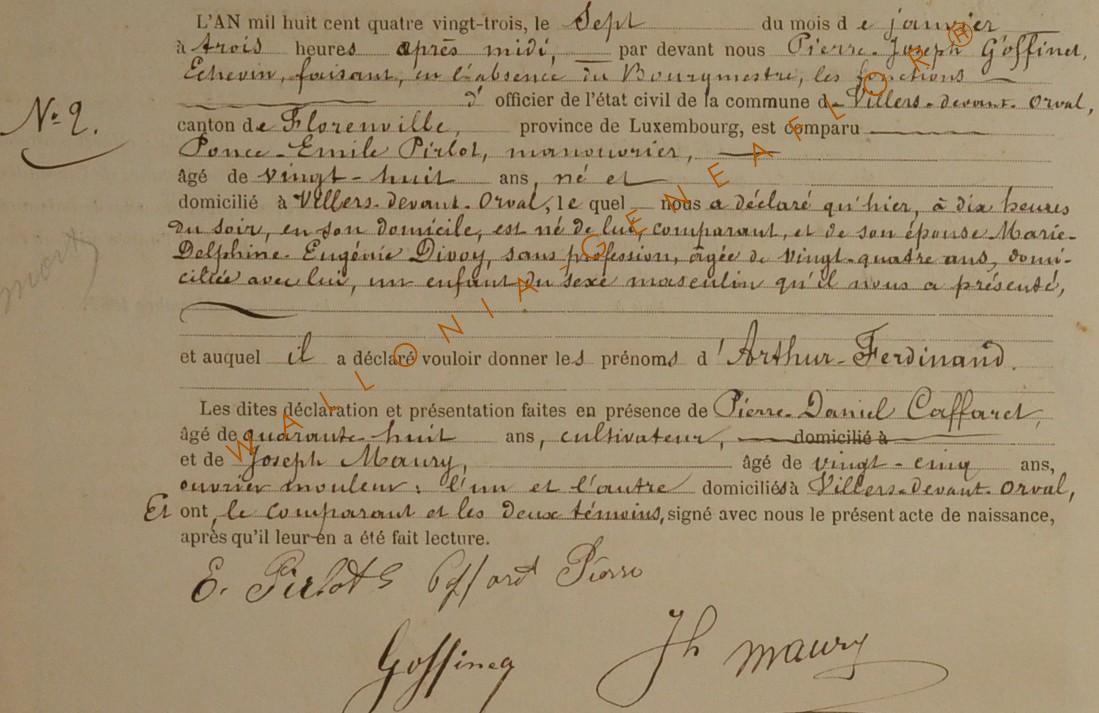 L'AN mil huit cent quatre vingt-trois, le Sept du mois de janvier
à trois heures après midi, par devant nous Pierre-Joseph Goffinet,
Echevin, faisant, en l'absence du Bourgmestre, les fonctions
d' officier de l'état civil de la commune de Villers-devant-Orval,
Nº 2.
canton de Florenville, province de Luxembourg, est comparu
Ponce-Emile Pirlot, manouvrier,
âgé de vingt-huit ans, né et
domicilié à Villers-devant-Orval, le quel nous a déclaré qu'hier, à dix heures
du soir, en son domicile, est né de lui, comparant, et de son épouse Marie-
Delphine-Eugénie Divoy, sans profession, âgée de vingt-quatre ans, domi-
ciliée avec lui, un enfant du sexe masculin qu'il nous a présenté,
mort
et auquel il a déclaré vouloir donner les prénoms d'Arthur-Ferdinand.
Les dites déclaration et présentation faites en présence de Pierre-Daniel Caffaret,
âgé de quarante-huit ans, cultivateur, domicilié à
et de Joseph Maury, âgé de vingt-cinq ans,
ouvrier mouleur; l'un et l'autre domiciliés à Villers-devant-Orval,
Et ont, le comparant et les deux témoins, signé avec nous le présent acte de naissance,
après qu'il leur en a été fait lecture.
E. Pirlot Pierre
Goffinet Jh Maury
WALLONIA-GENEAFLOR®